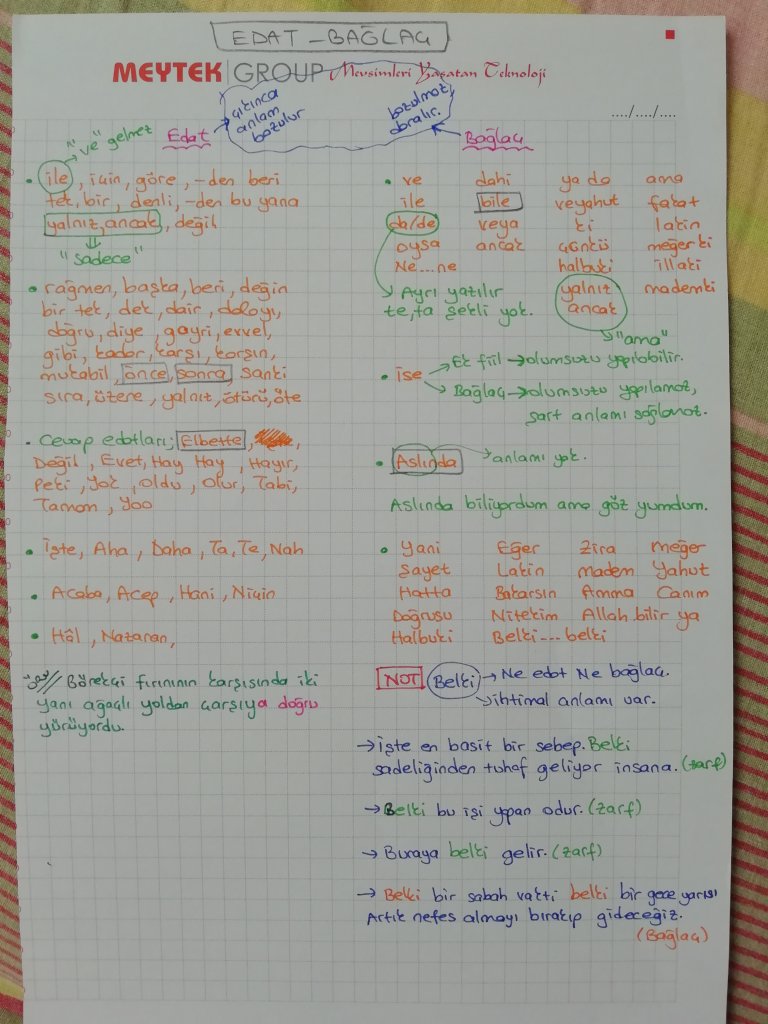 EDAT - BAĞLAÇ
MEYTEK GROUP Mevsimleri Yaşatan Teknoloji
..../..../....
"ve" gelmez
Edat
çıkınca
anlam
bozulur
• ile, için, göre, -den beri
tek, bir, denli, -den bu yana
yalnız, ancak, değil
"sadece"
• rağmen, başka, beri, değin
bir tek, dek, dair, dolayı,
doğru, diye, gayri, evvel,
gibi, kadar, karşı, karşın,
mukabil, önce, sonra, sanki
sıra, üzere, yalnız, ötürü, öte
• Cevap edatları; Elbette,
Değil, Evet, Hay Hay, Hayır,
Peki, Yok, Oldu, Olur, Tabi,
Tamam, Yoo
• İşte, Aha, Daha, Ta, Te, Nah
• Acaba, Acep, Hani, Niçin
• Hâl, Nazaran,
Börekçi fırınının karşısında iki
yanı ağaçlı yoldan çarşıya doğru
yürüyordu.
bozulmaz
daralır.
Bağlaç
• ve dahi ya da ama
ile bile veyahut fakat
da/de veya ki lakin
oysa ancak çünkü meğer ki
Ne...ne halbuki illaki
yalnız mademki
ancak
Ayrı yazılır
te, ta şekli yok.
"ama"
• ise → Ek fiil → olumsuzu yapılabilir.
→ Bağlaç → olumsuzu yapılamaz,
şart anlamı sağlamaz.
• Aslında → anlamı yok.
Aslında biliyordum ama göz yumdum.
• Yani Eğer Zira meğer
Şayet Lakin madem Yahut
Hatta Bakarsın Amma Canım
Doğrusu Nitekim Allah bilir ya
Halbuki Belki... belki
NOT Belki → Ne edat Ne bağlaç.
→ ihtimal anlamı var.
→ İşte en basit bir sebep. Belki
sadeliğinden tuhaf geliyor insana. (zarf)
→ Belki bu işi yapan odur. (zarf)
→ Buraya belki gelir. (zarf)
→ Belki bir sabah vakti belki bir gece yarısı
Artık nefes almayı bırakıp gideceğiz.
(Bağlaç)